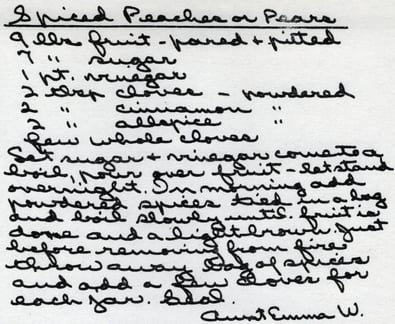 Spiced Peaches or Pears
9 lbs fruit - pared + pitted
7 " sugar
1 pt. vinegar
2 tbsp cloves - powdered
2 " cinnamon "
2 " allspice "
few whole cloves
Let sugar + vinegar come to a
boil, pour over fruit - let stand
overnight. In morning add
powdered spices tied in a bag
and boil slowly until fruit is
done and a light brown. Just
before removing from fire
throw away bag of spices
and add a few cloves for
each jar. Seal.
Aunt Emma W.